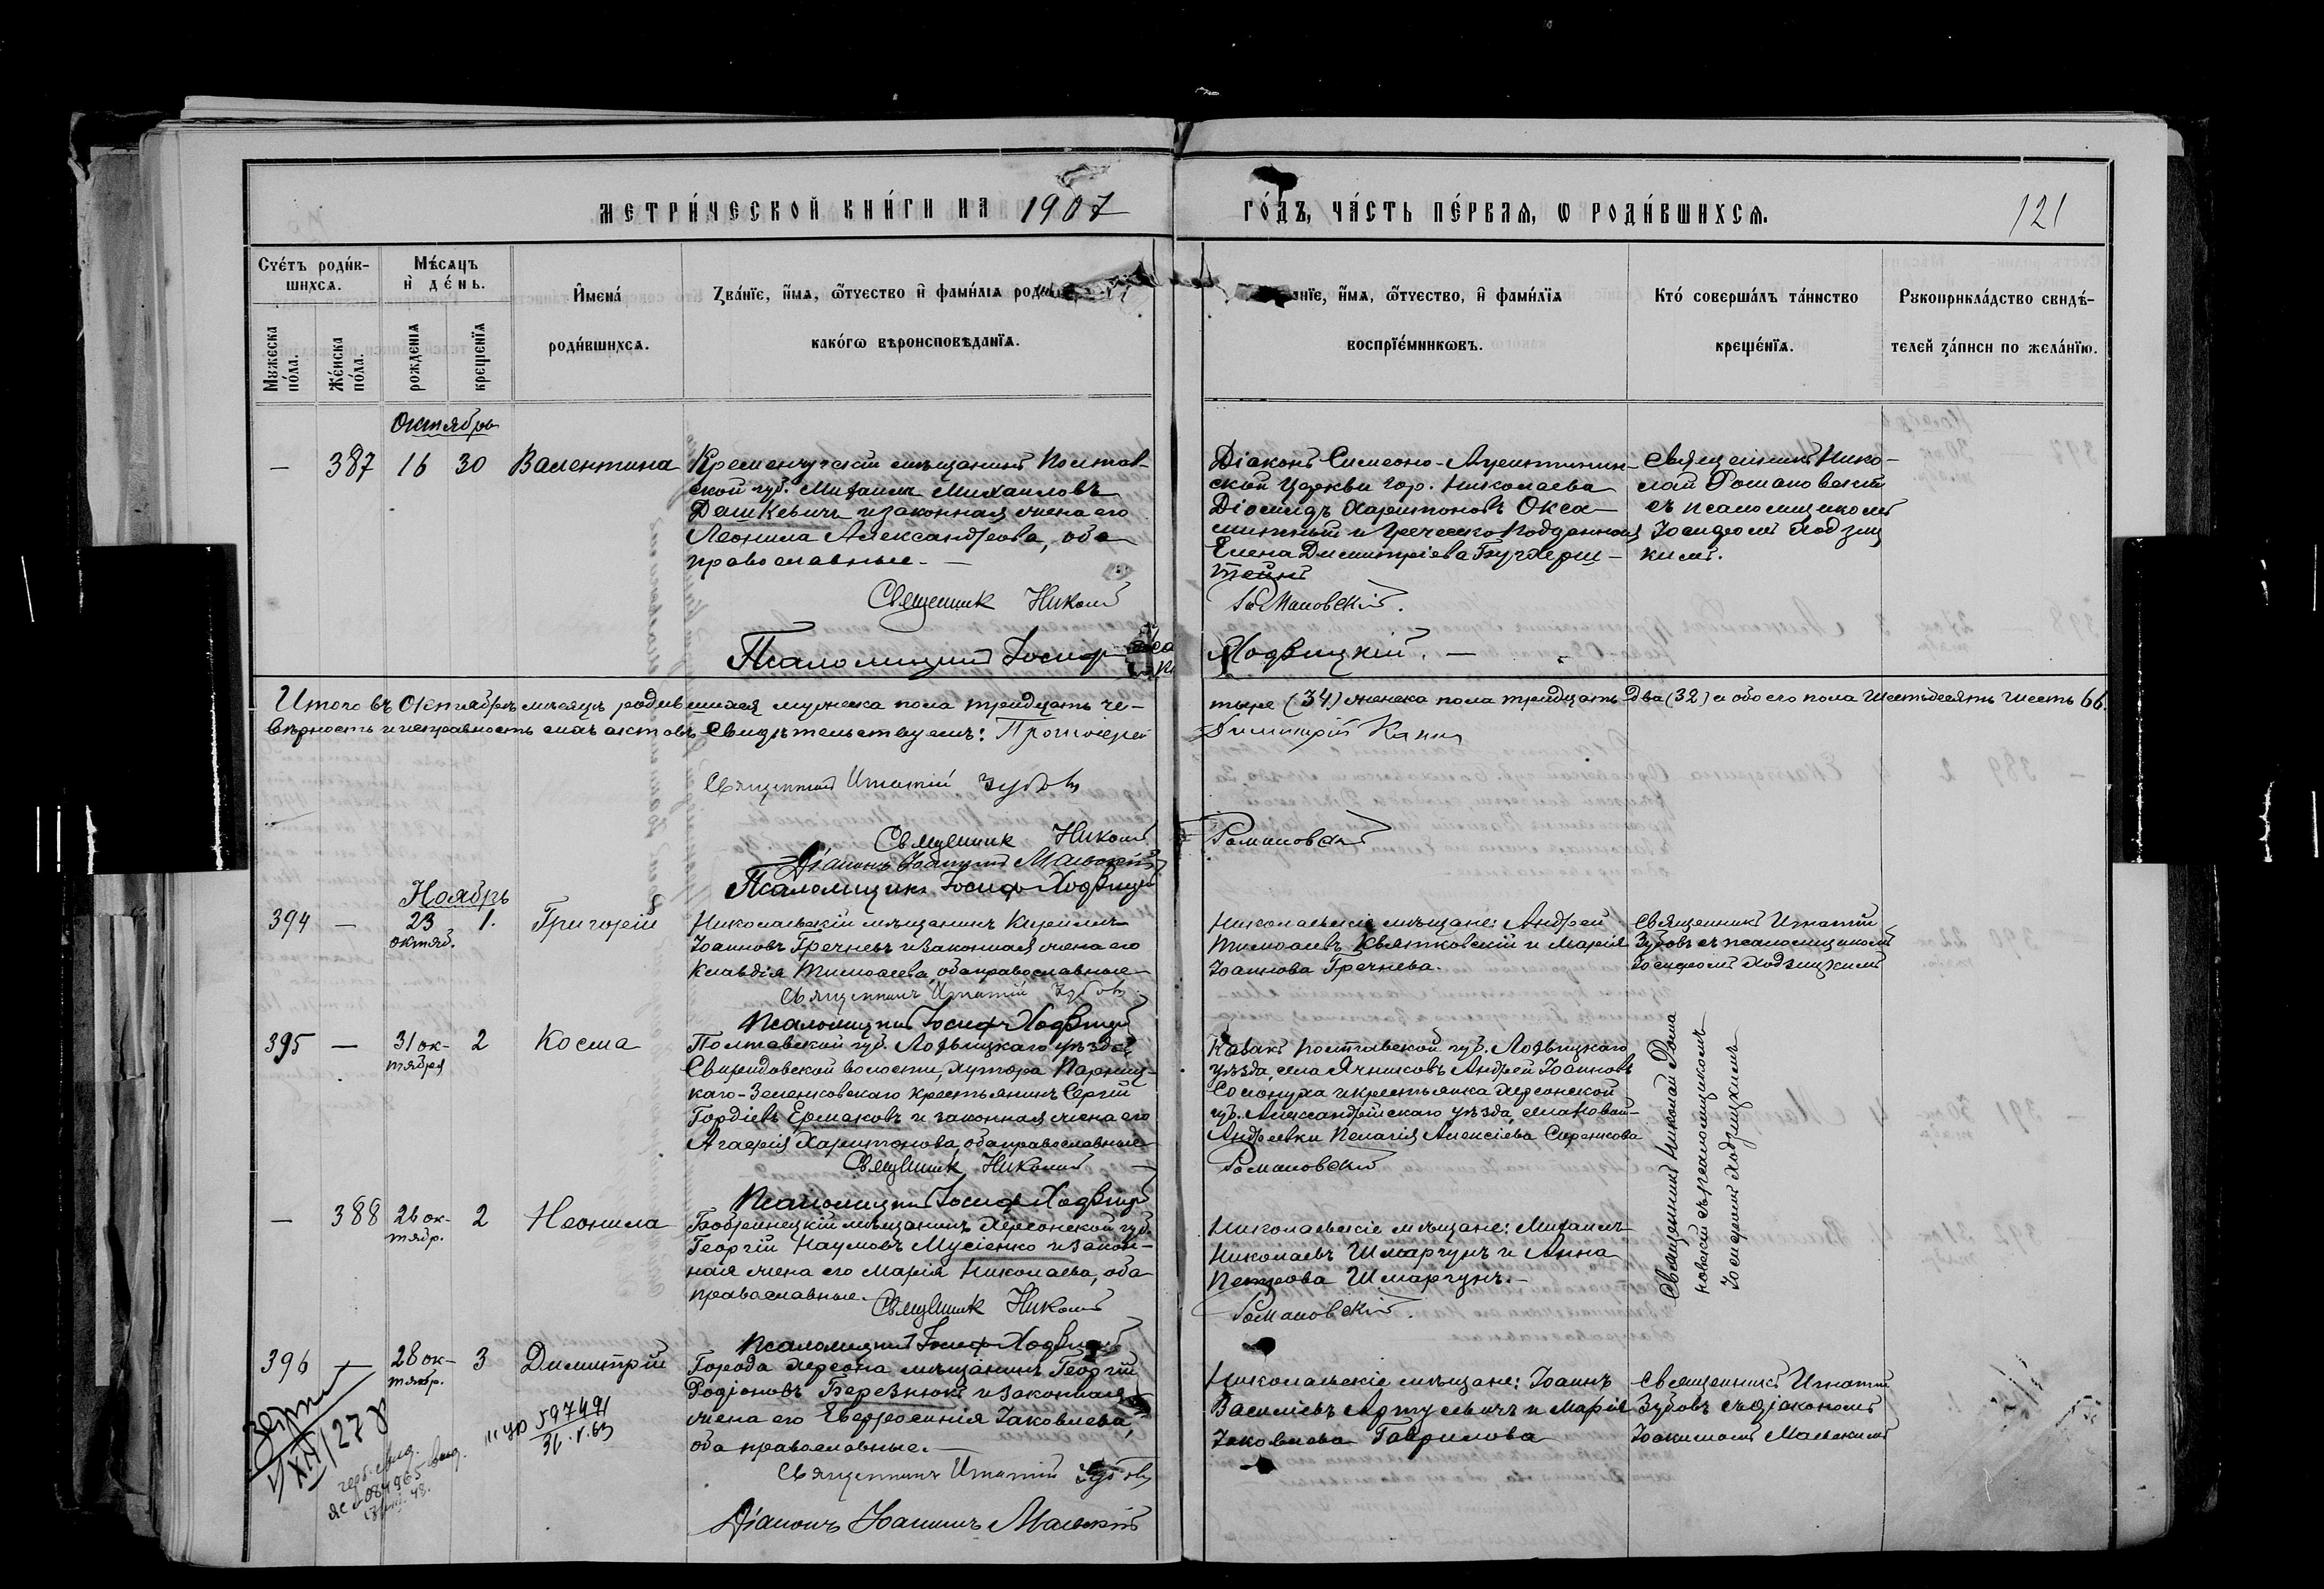 МЕТРИ́ЧЕСКОЙ КНИ́ГИ НА 1907
ГО́ДЪ, ЧА́СТЬ ПЕ́РВАЯ, Ѡ РОДИ́ВШИХСЯ.
121
Счетъ роди́в-
шихся.
Мѣ́сяцъ
и҆ де́нь.
Мужеска по́ла.
Же́нска по́ла.
рожденїя
крещенїя
И҆мена́
роди́вшихся.
Зва́нїе, и҆́мя, ѻ҆́тчество и҆ фами́лїя
како́гѡ вѣроисповѣданїя.
и҆́мя, ѻ҆́тчество, и҆ фами́лїя
воспрїе́мниковъ.
Кто́ соверша́лъ та́инство
креще́нїя.
Рукоприкла́дство свидѣ́-
телей за́писи по жела́нїю.
Октябрь
— 387 16 30 Валентина
Кременчугскій мѣщанинъ Полтав-
ской губ. Михаилъ Михаиловъ
Дашкевичъ и законная жена его
Леонила Александрова, оба
православные. —
Священникъ Николай
Романовскій.
Псаломщикъ Іосифъ
Ходзицкій. —
Діаконъ Симеоно-
ской Церкви гор. Николаева
Діомидъ Харитоновъ Окса-
и Греческо подданная
Елена Димитріева
Священникъ Нико-
лай Романовскій
съ псаломщикомъ
Іосифомъ Ходзиц
кимъ.
Итого въ Октябрѣ мѣсяцѣ родившихся мужеска пола тридцать че-
тыре (34) женска пола тридцать два (32) и обоего пола шестьдесять шесть 66.
вѣрность и исправность сихъ актовъ свидѣтельствуемъ: Протоіерей
Димитрій
Священникъ Игнатій Зубовъ
Священникъ Николай
Романовскій
Діаконъ Іоакимъ Мальскій
Псаломщикъ Іосифъ Ходзицкій
Ноябрь
394 — 23 1. Григорій
октяб.
Николаевскій мѣщанинъ Кириллъ
Іоанновъ Гречневъ и законная жена его
Клавдія Тимоѳеева оба православные
Священникъ Игнатій Зубовъ.
Псаломщикъ Іосифъ Ходзицкій
Николаевскіе мѣщане: Андрей
Тимоѳеевъ Квятковскій и Марія
Іоаннова Гречнева.
Священникъ Игнатій
Зубовъ съ псаломщикомъ
Іосифомъ Ходзицкимъ
395 — 31 ок- 2 Косма
тября
Полтавской губ. Лохвицкаго уѣзда
Свиридовской волости, хутора
крестьянинъ Сергій
Гордіевъ Ермаковъ и законная жена его
Агафія Харитонова оба православные
Священникъ Николай
Романовскій
Псаломщикъ Іосифъ Ходзицкій
Козакъ Полтавской губ. Лохвицкаго
уѣзда, села Ячниковъ Андрей Іоанновъ
Солонуха и крестьянка Херсонской
губ. Александрійскаго уѣзда,
Андреевки Пелагія Алексіева
Священникъ Николай Рома
новскій съ псаломщикомъ
Іосифомъ Ходзицкимъ
— 388 26 ок- 2 Неонила
тябр.
Бобринецкій мѣщанинъ Херсонской губ.
Георгій Наумовъ Мусіенко и закон-
ная жена его Марія Николаева, оба
православные.
Священникъ Николай
Романовскій.
Псаломщикъ Іосифъ Ходзицкій
Николаевскіе мѣщане: Михаилъ
Николаевъ Шмаргунъ и Анна
Петрова Шмаргунъ. —
396 — 28 ок- 3 Димитрій
тябр.
Города Херсона мѣщанинъ Георгій
Родіоновъ Березнюкъ и законная
жена его Евфросинія Іаковлева,
оба православные. —
Священникъ Игнатій Зубовъ
Діаконъ Іоакимъ Мальскій
Николаевскіе мѣщане: Іоаннъ
Василіевъ и Марія
Іаковлева Гаврилова
Священникъ Игнатій
Зубовъ съ діакономъ
Іоакимомъ Мальскимъ
597491